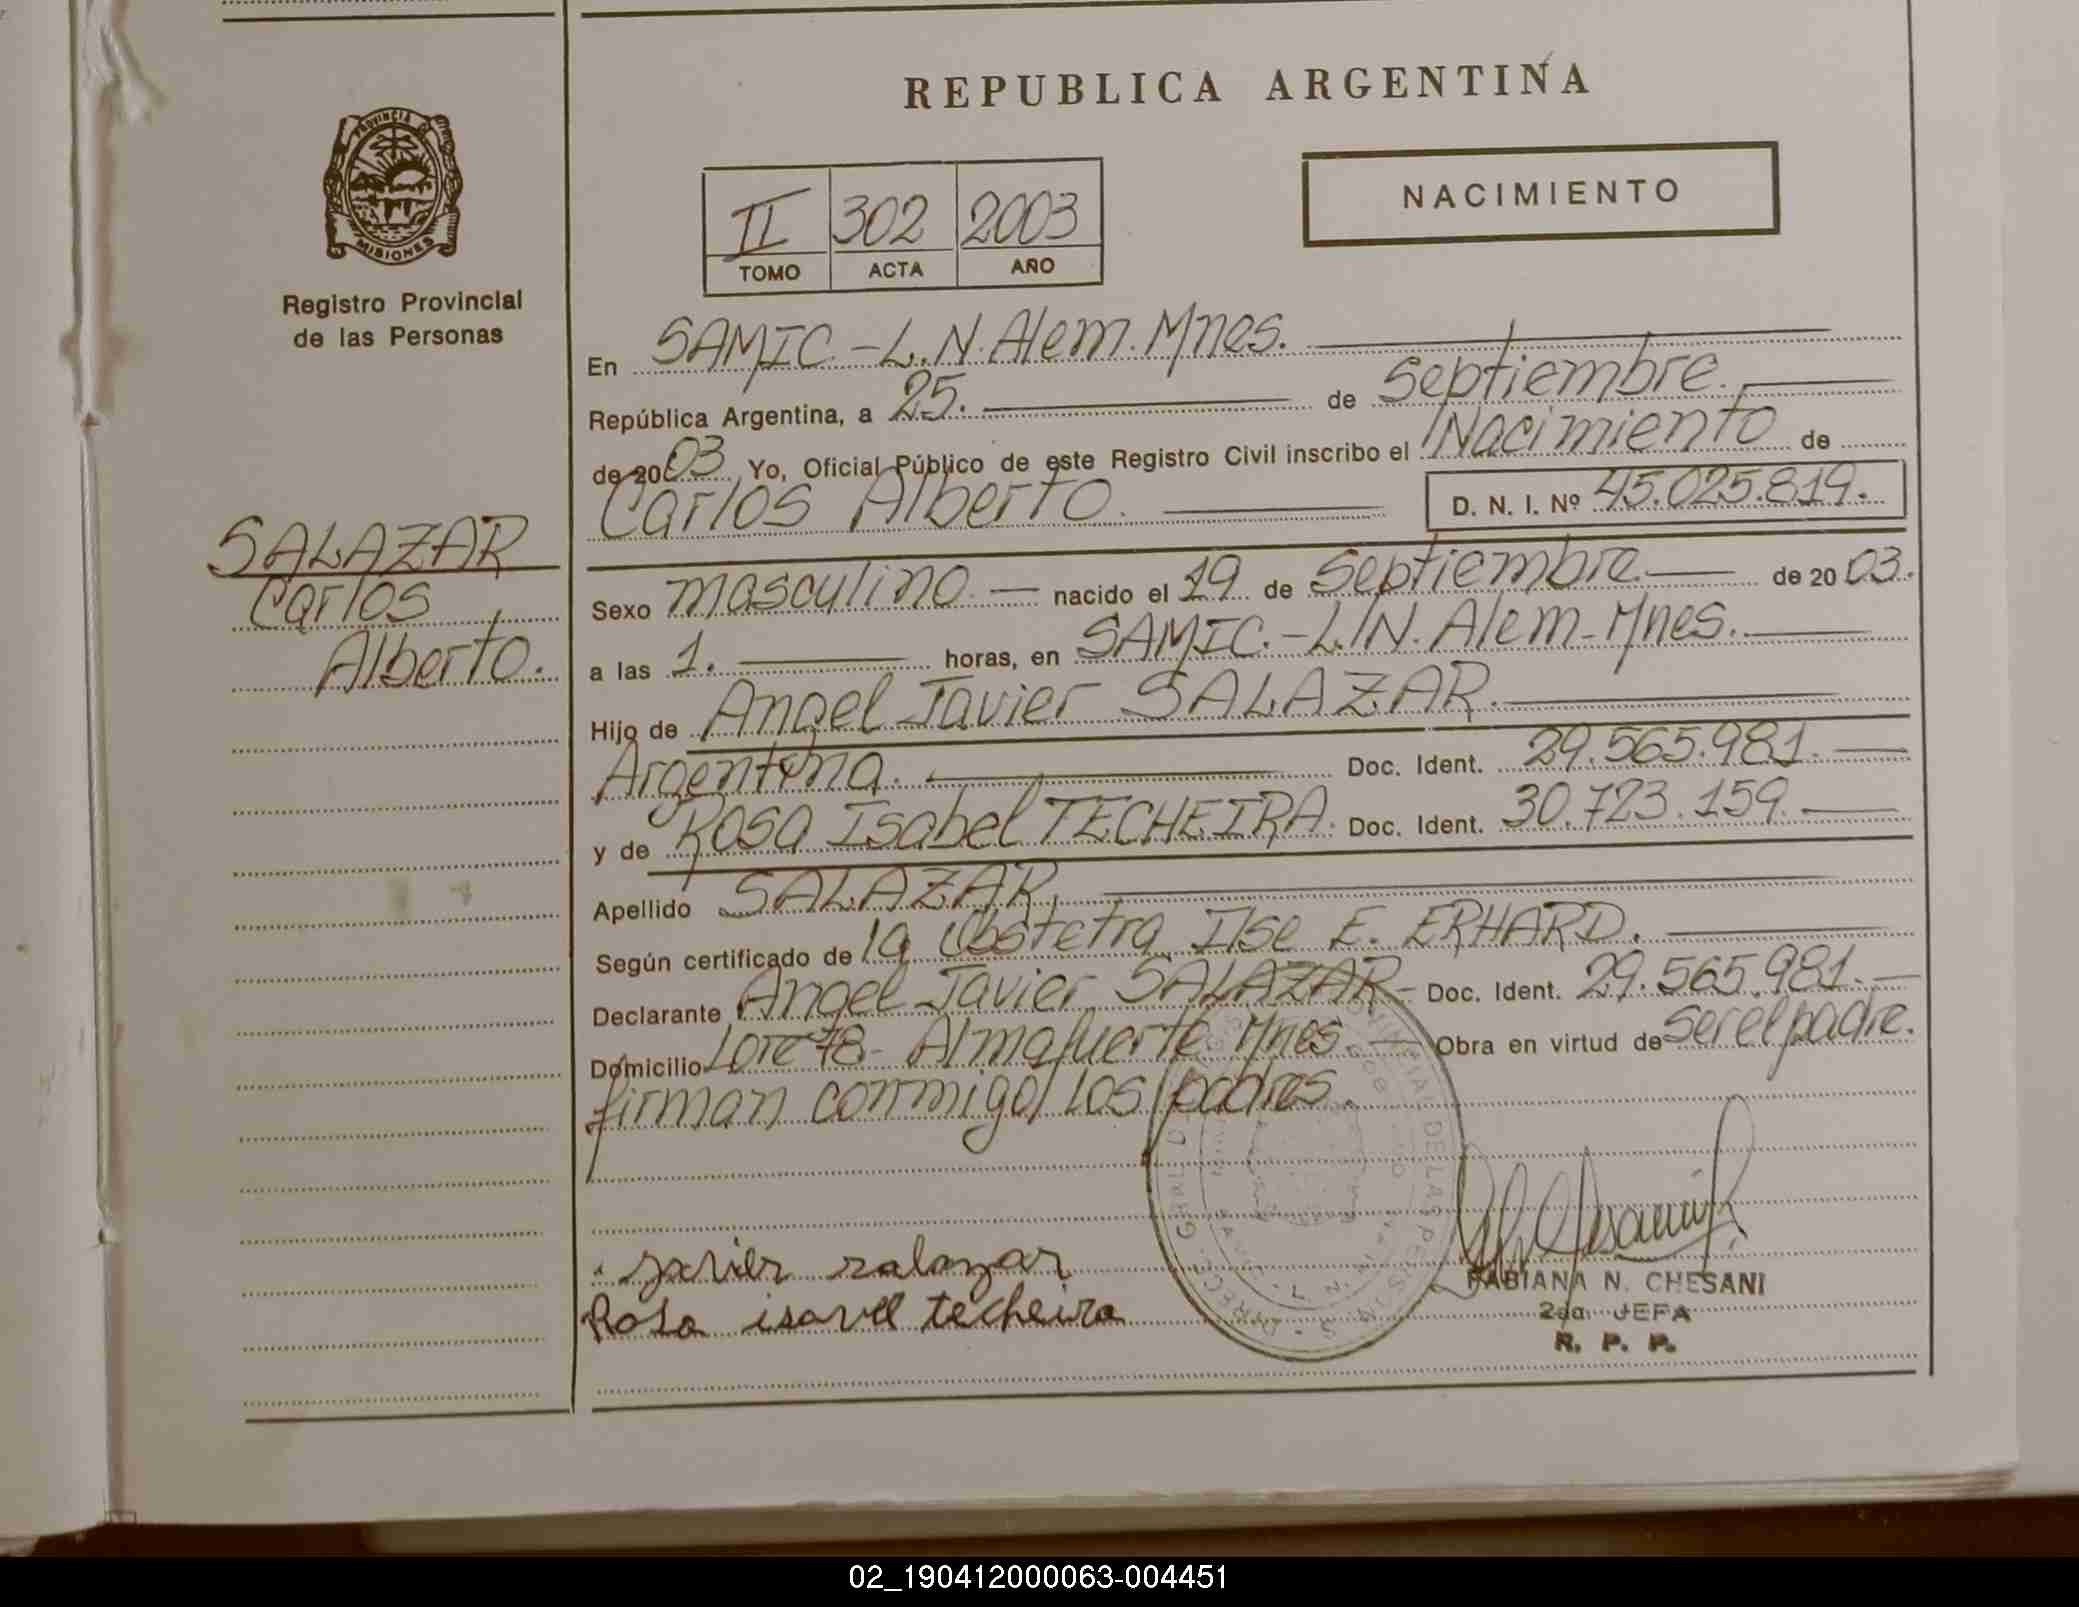 REPUBLICA ARGENTINA
PROVINCIA DE
MISIONES
Registro Provincial
de las Personas
II 302 2003
TOMO ACTA AÑO
NACIMIENTO
En SAMIC.-L.N.Alem.Mnes.
República Argentina, a 25. de Septiembre.
de 2003 Yo, Oficial Público de este Registro Civil inscribo el Nacimiento de
Carlos Alberto. D. N. I. Nº 45.025.819.
SALAZAR
Carlos
Alberto.
Sexo masculino.- nacido el 19 de Septiembre.- de 2003.
a las 1. horas, en SAMIC.-L.N. Alem-Mnes.
Hijo de Angel Javier SALAZAR.
Argentina. Doc. Ident. 29.565.981.-
y de Rosa Isabel TECHEIRA. Doc. Ident. 30.723.159.-
Apellido SALAZAR.
Según certificado de la Obstetra Ilse E. ERHARD.
Declarante Angel Javier SALAZAR- Doc. Ident. 29.565.981.-
Domicilio Lote 78- Almafuerte. Mnes.- Obra en virtud de ser el padre.
firman conmigo los padres.
javier salazar
Rosa isavel techeira
FABIANA N. CHESANI
2da. JEFA
R. P. P.
02_190412000063-004451